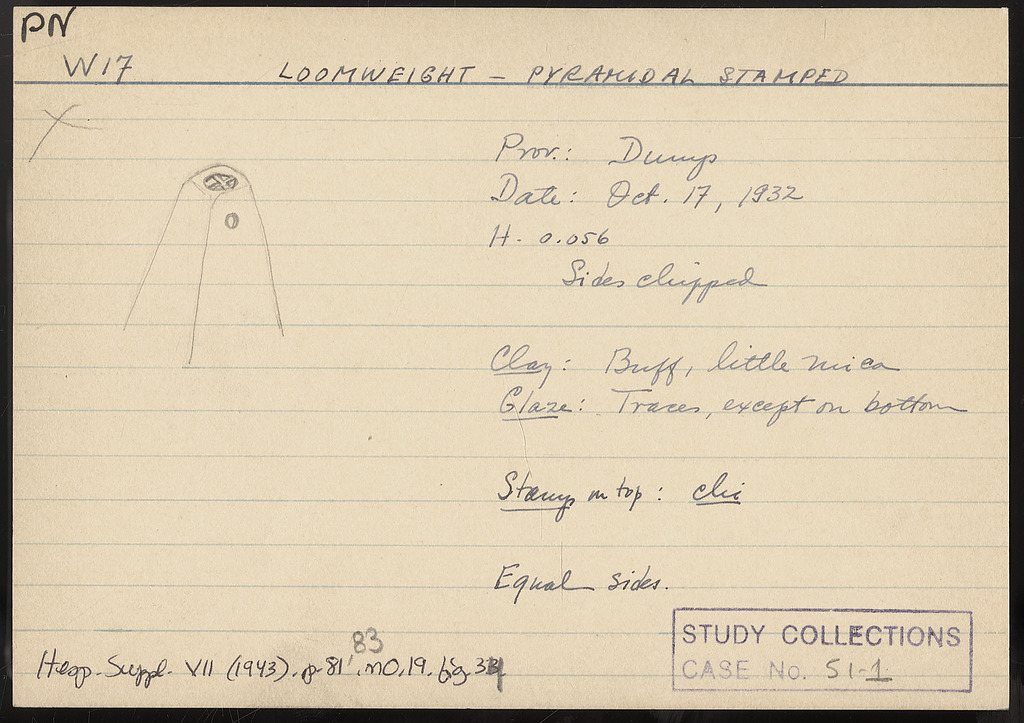 PN
W17
LOOMWEIGHT – PYRAMIDAL STAMPED
Prov.: Dump
Date: Oct. 17, 1932
H. 0.056
Sides chipped
Clay: Buff, little mica
Glaze: Traces, except on bottom
Stamp on top: chi
Equal sides.
83
Hesp. Suppl. VII (1943). p. 81, no. 19. fig. 34
STUDY COLLECTIONS
CASE No. 51-1